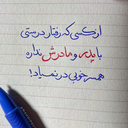 از کسی که رفتار درستی
با پدر و مادرش نداره
همسر خوبی در نمیاد!